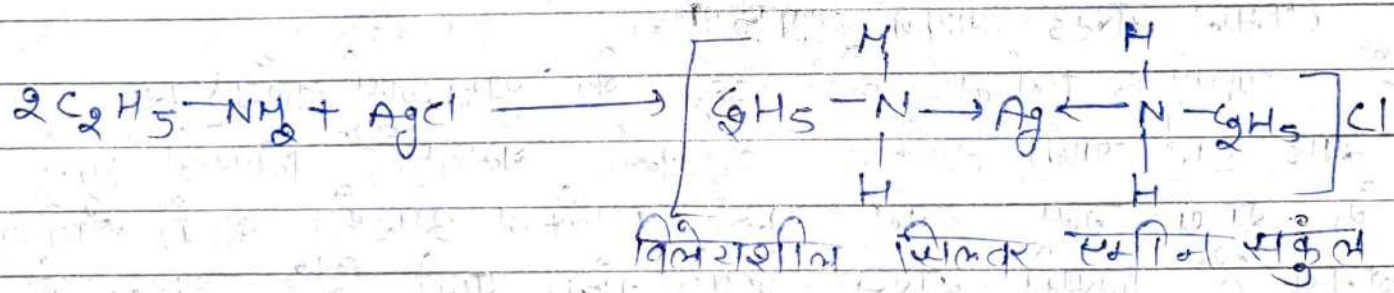 H H
2C₂H₅—NH₂ + AgCl ⟶ [C₂H₅—N→Ag←N—C₂H₅]Cl
H H
विलेयशील सिल्वर एमीन संकुल